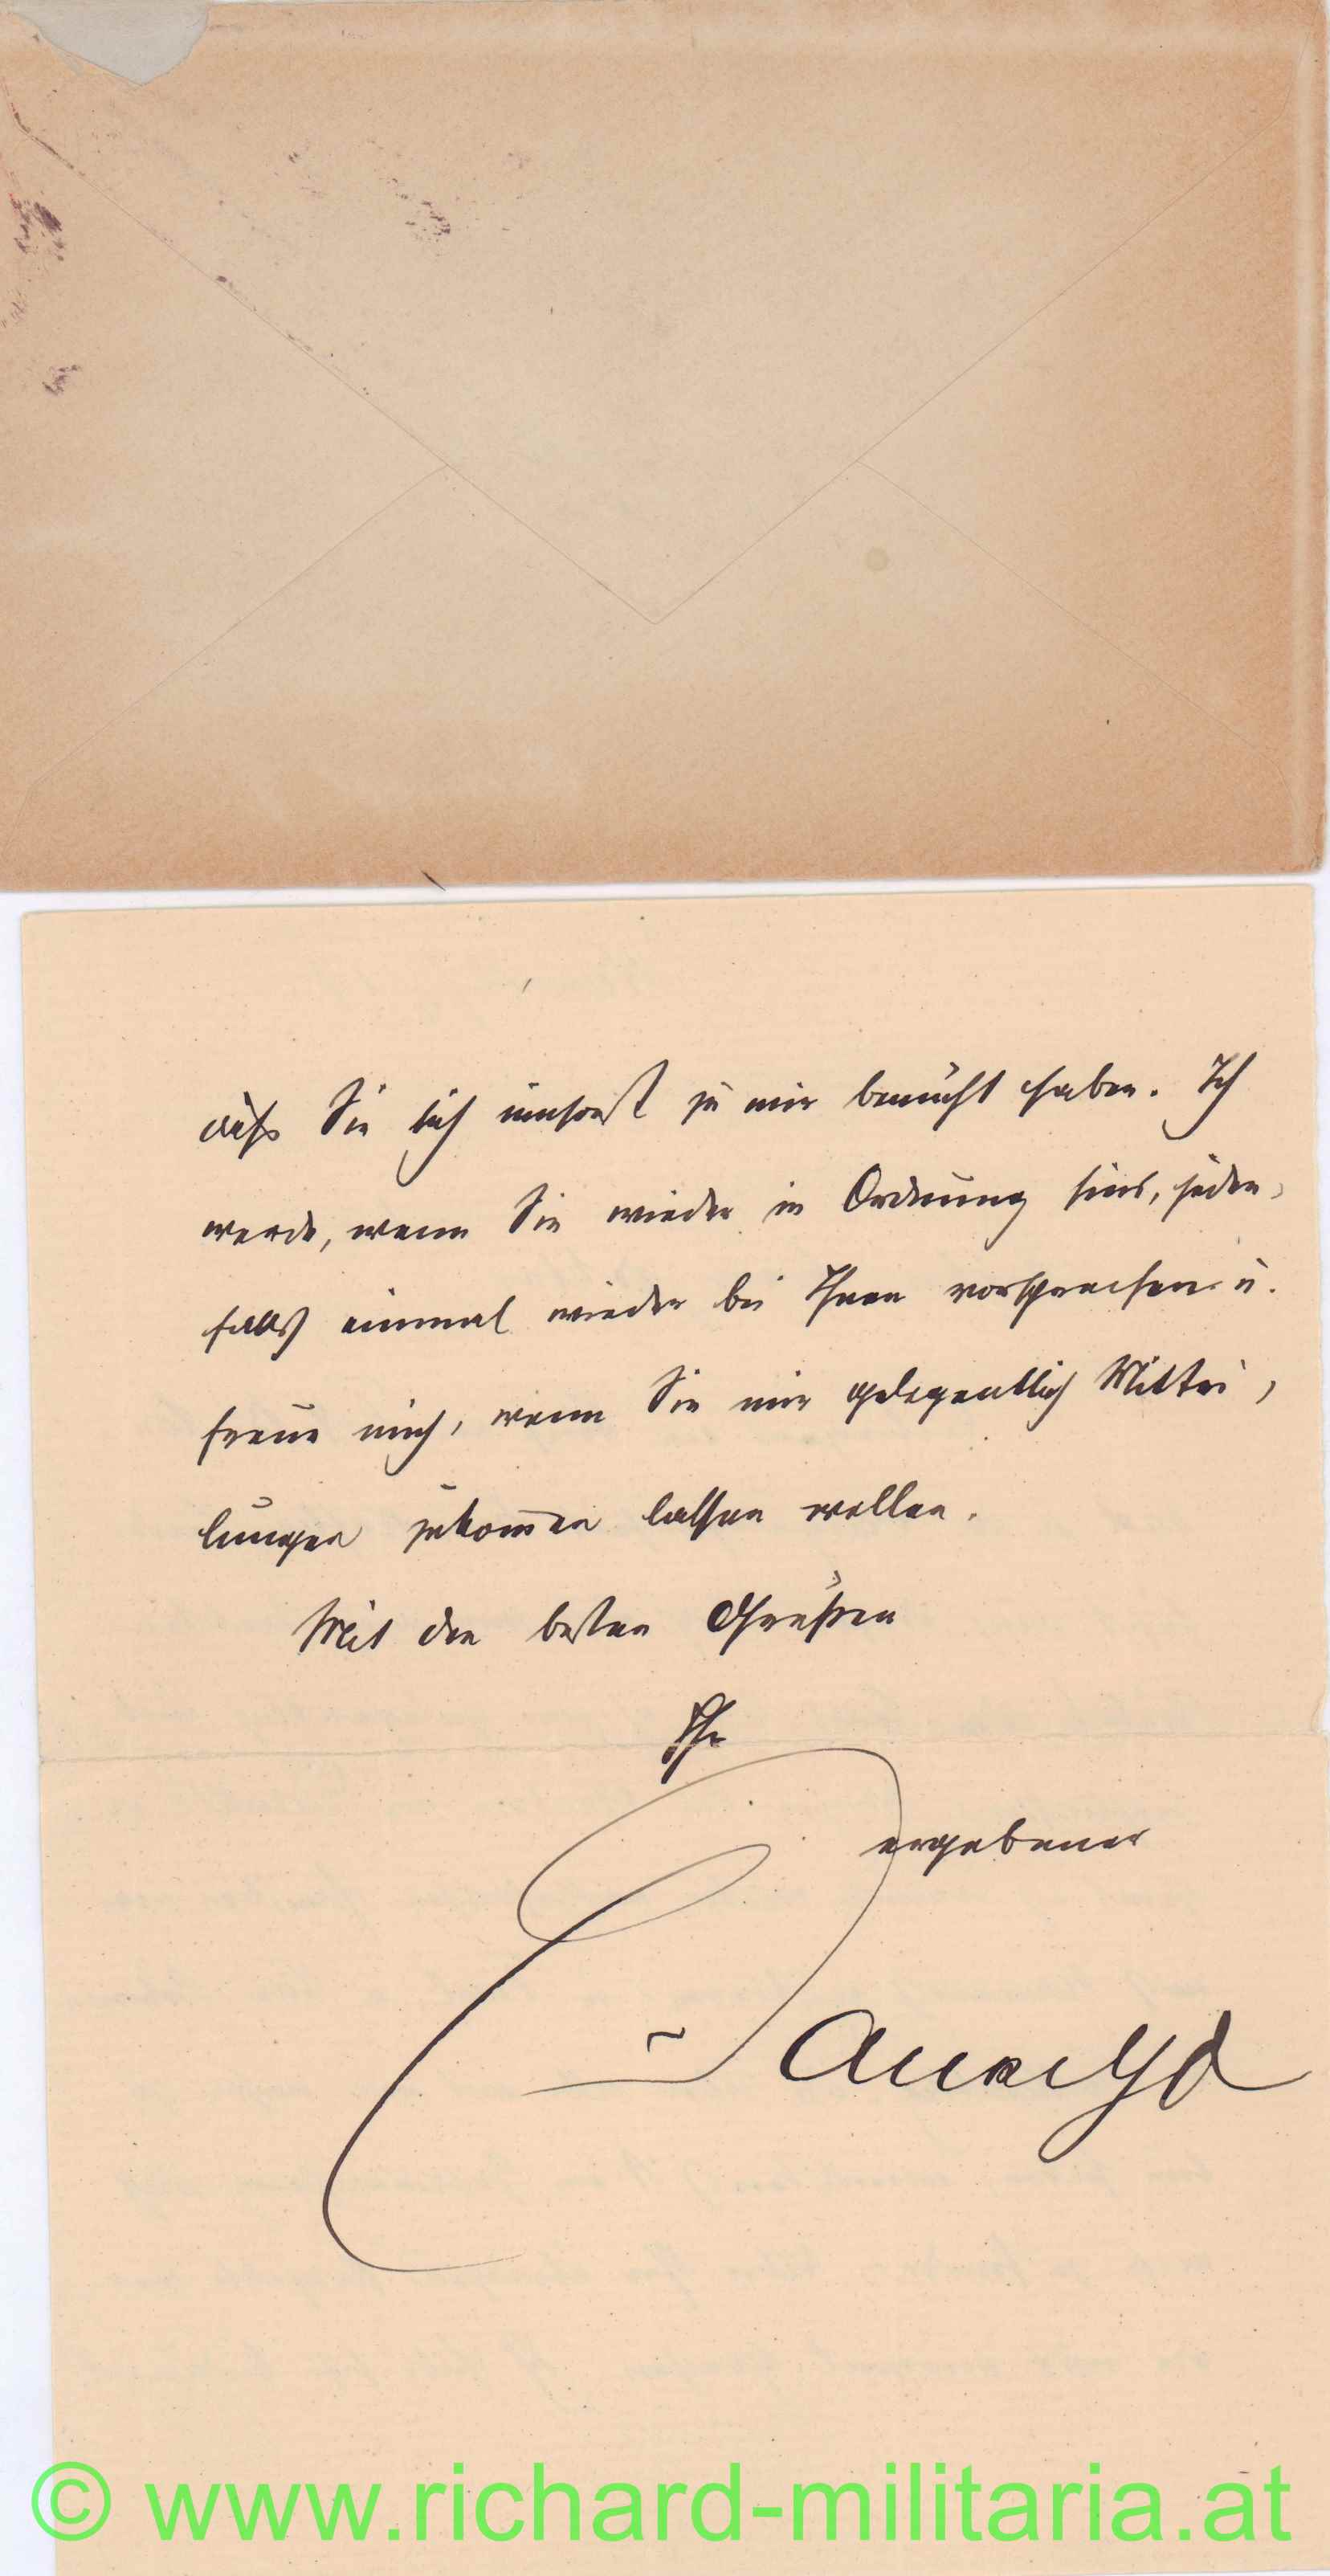 daß Sie sich umsonst zu mir bemüht haben. Ich
werde, wenn Sie wieder in Ordnung sind, jeden-
falls einmal wieder bei Ihnen vorsprechen u.
freue mich, wenn Sie mir gelegentlich Mittei-
lungen zukommen lassen wollen.
Mit den besten Grüßen
Ihr
ergebener
© www.richard-militaria.at